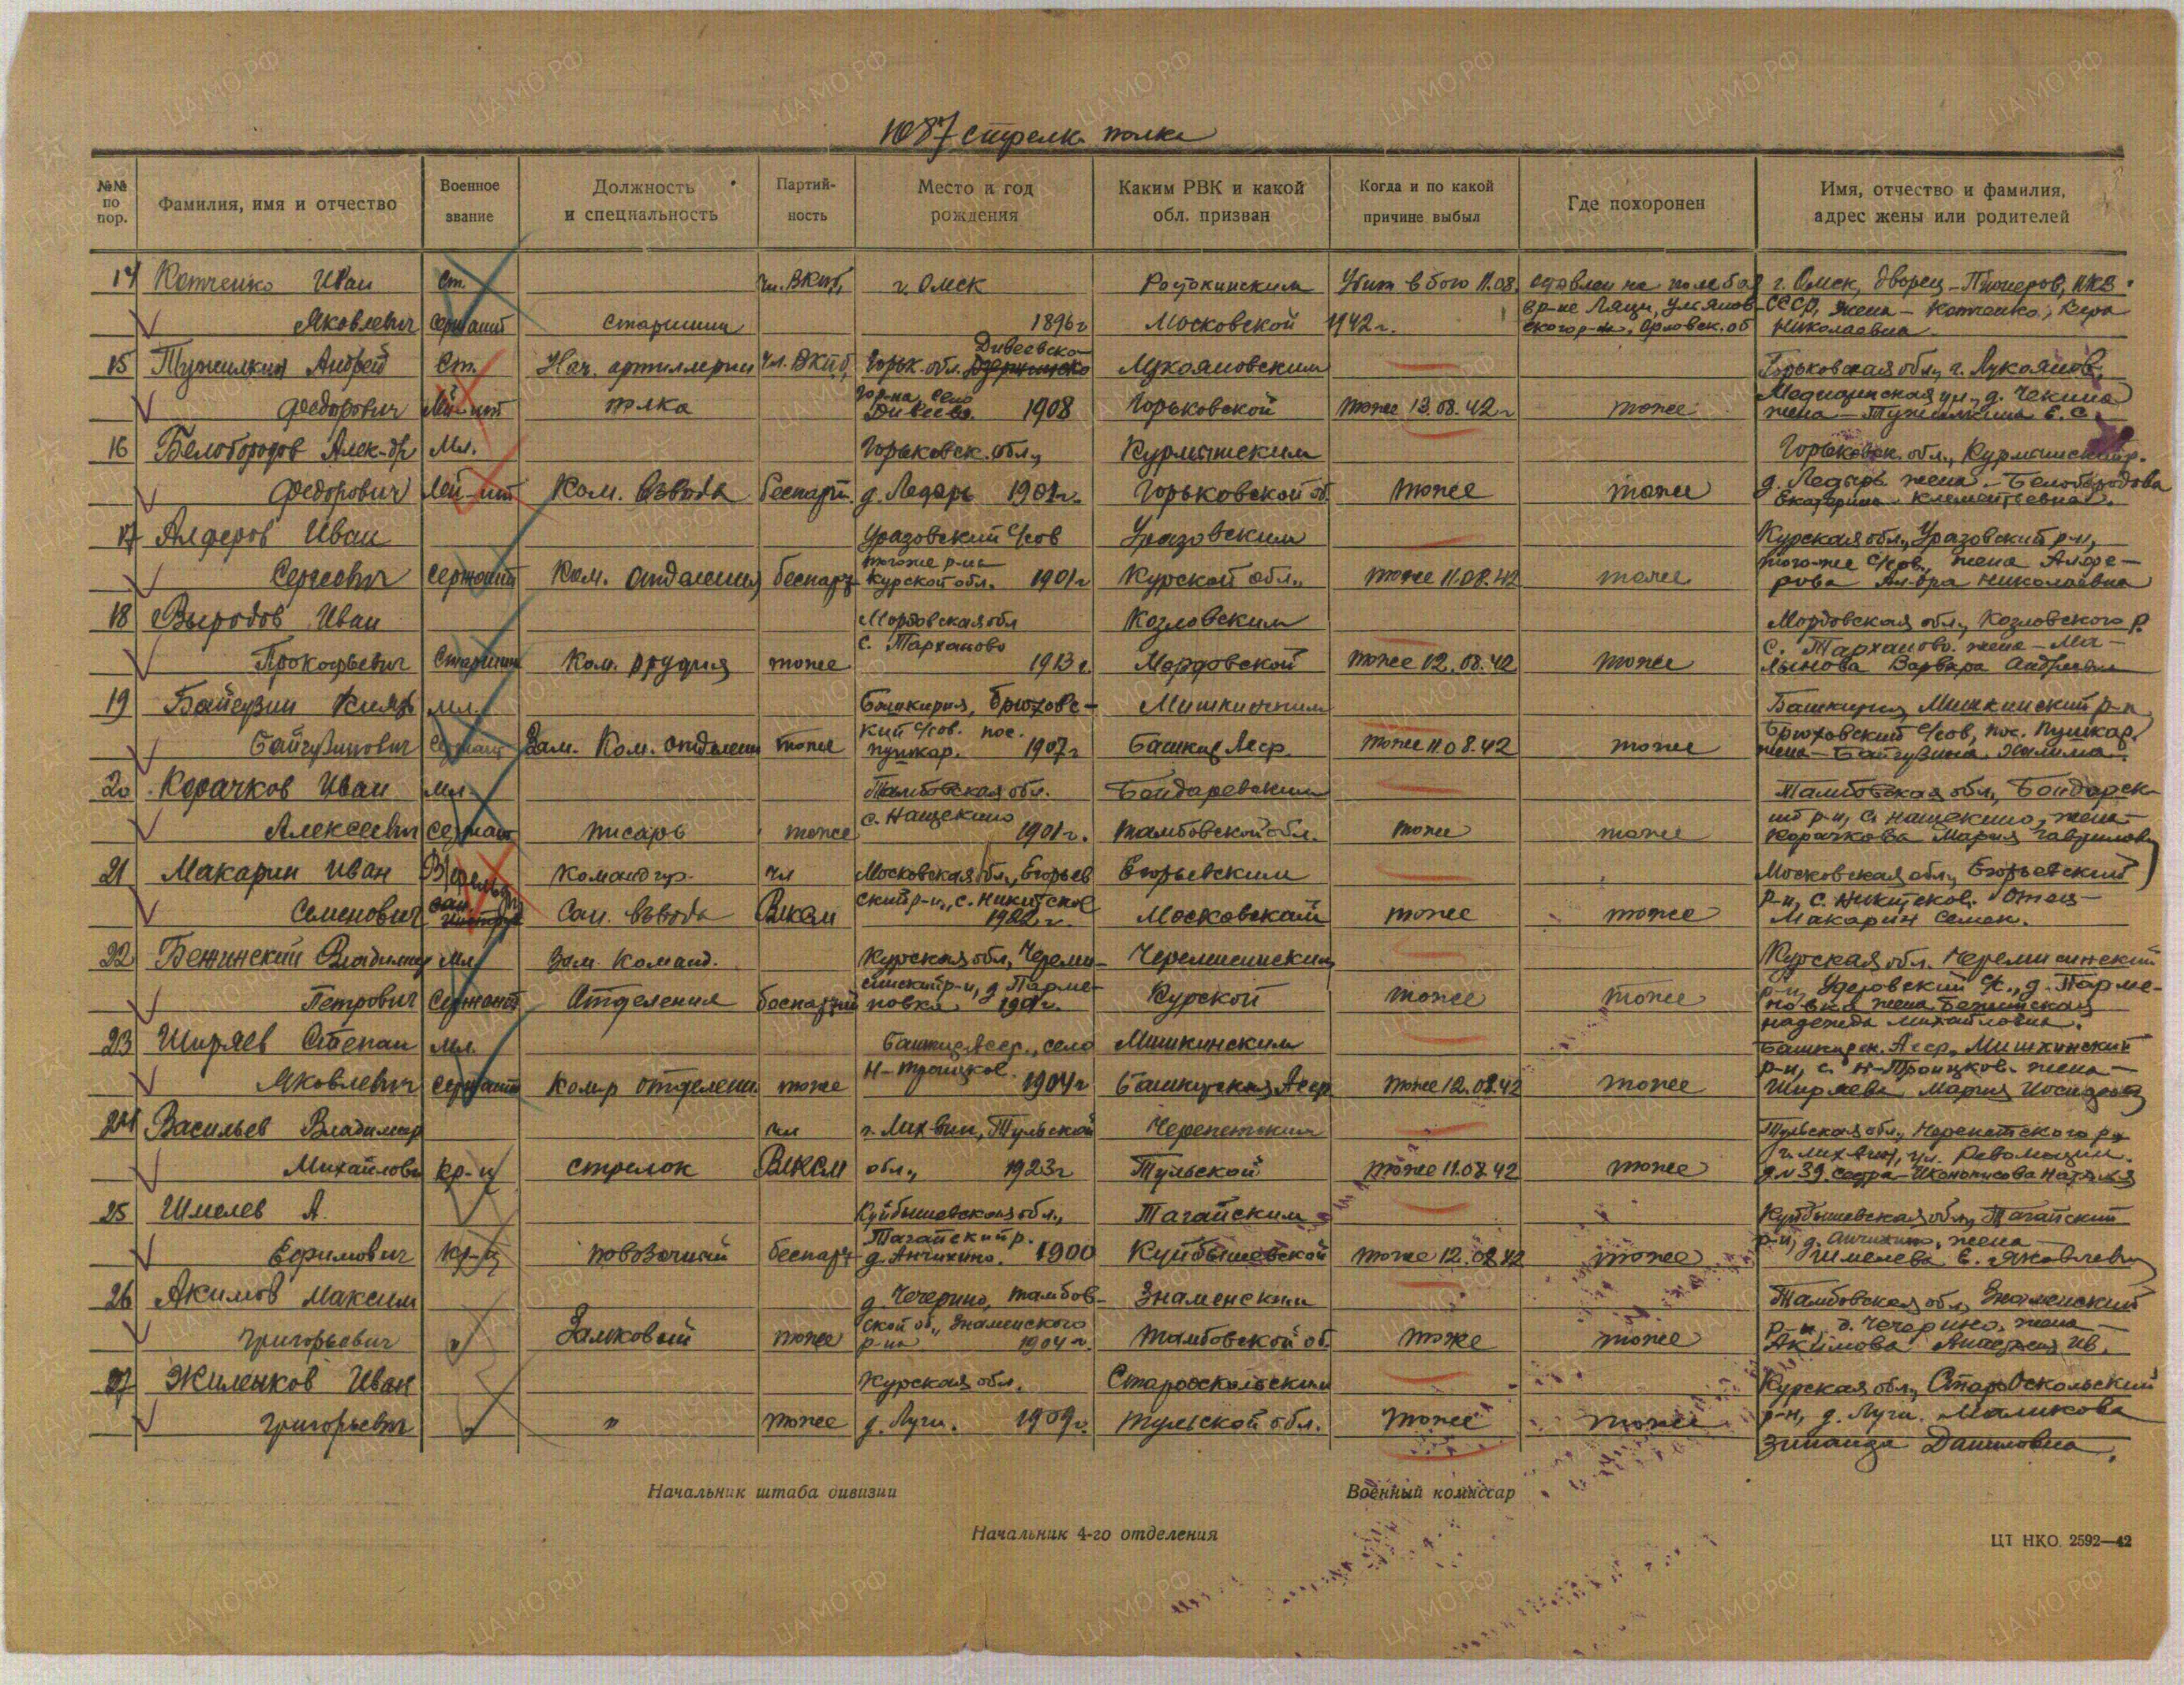 1087 стрелк. полка
№№ по пор.
Фамилия, имя и отчество
Военное звание
Должность и специальность
Партий-ность
Место и год рождения
Каким РВК и какой обл. призван
Когда и по какой причине выбыл
Где похоронен
Имя, отчество и фамилия, адрес жены или родителей
Котченко Иван ст. г. Омск Ростокинским Убит в бою 11.08. г. Омск, дворец
Яковлевич сержант старшина 1896г Московской 1942г. жена – Николаевна
15 Андрей Ст. Нач. артиллерии Горьк. обл. Дивеевско- Мукояновским Горьковская обл., г. Лукоянов,
Федорович полка го р-на, село Дивеево. 1908 Горьковской тоже 13.08.42г тоже жена –
16 Белобородов Алек-др Мл. Горьковск. обл., Курмышским Горьковск. обл.,
Федорович лей-нт Ком. взвода беспарт. 1901г. Горьковской об. тоже тоже жена – Белобородова Екатерина Клементьевна.
17 Иван Уразовский с/сов Уразовским Курская обл., Уразовский р-н,
Сергеевич сержант Ком. отделения беспарт. тогоже р-на Курской обл. 1901г Курской обл. тоже 11.08.42 тоже того-же с/сов., жена Николаевна
18 Выродов Иван Мордовская обл Козловским Мордовская обл., Козловского р.
Прокофьевич старшина Ком. орудия тоже с. Тарханово 1913г. Мордовской тоже 12.08.42 тоже с. Тарханово. жена – Варвара Андреевна
19 мл. Башкирия, Мишкинским Башкирия, Мишкинский р-н
сержант Зам. Ком. отделен тоже кий с/сов. пос. пушкар. 1907г Башкир Асср. тоже 11.08.42 тоже с/сов, пос. Пушкар. жена –
20 Корачков Иван Мл. Тамбовская обл. Бондаревским Тамбовская обл., Бондарск-
Алексеевич сержант писарь тоже с. Нащекино 1901г. Тамбовской обл. тоже тоже ий р-н, с. Нащекино, жена – Корачкова Мария
21 Макарин Иван Командир. чл Московская обл., Егорьев Егорьевским Московская обл., Егорьевский
Семенович Сан. взвода Влксм ский р-н, с. Никитское 1922г. Московской тоже тоже р-н, с. Никитской. Отец – Макарин Семен.
22 Бежинский Владимир мл. Зам. Команд. Курская обл, Череми- Черемисинским Курская обл. Черемисинский
Петрович сержант Отделения беспартий синский р-н, д Парме- новка. 1901г. Курской тоже тоже д. Парме- новка жена Бежинская Надежда Михайловна.
23 Ширяев Степан мл. Башкир Асср., село Мишкинским Башкирск. Асср. Мишкинский
Яковлевич сержант Комр отделени тоже Н-Троицкое. 1904г Башкирская Асср тоже 12.08.42 тоже р-н, с. Н-Троицков. жена – Ширяева Мария
24 Васильев Владимир чл г. Лихвин, Тульской Черепетским Тульская обл., Черепетского р-на
Михайлович кр-ц стрелок ВЛКСМ обл., 1923г Тульской тоже 11.08.42 тоже г. Лихвин, ул. Революции. д. № 39. сестра –
25 Шмелев А. Куйбышевская обл., Тагайским Куйбышевская обл., Тагайский
Ефимович кр-ц повозочный беспарт Тагайский р. д. Анчихино. 1900 Куйбышевской тоже 12.08.42 тоже р-н, д. Анчихино, жена – Шмелева Е. Яковлевн
26 Акимов Максим д. Чечерино, Тамбов- Знаменским Тамбовская обл., Знаменский
Григорьевич " Замковый тоже ской об., Знаменского р-на 1904г. Тамбовской об. тоже тоже р-н, д. Чечерино. жена – Акимова Ив.
27 Жиленков Иван Курская обл. Старооскольским Курская обл., Старо Оскольский
Григорьевич " " тоже д. Луги. 1909г. Тульской обл. тоже тоже р-н, д. Луги. Маликова Зинаида Даниловна
Начальник штаба дивизии
Военный комиссар
Начальник 4-го отделения
ЦТ НКО 2592—42
ЦА МО РФ